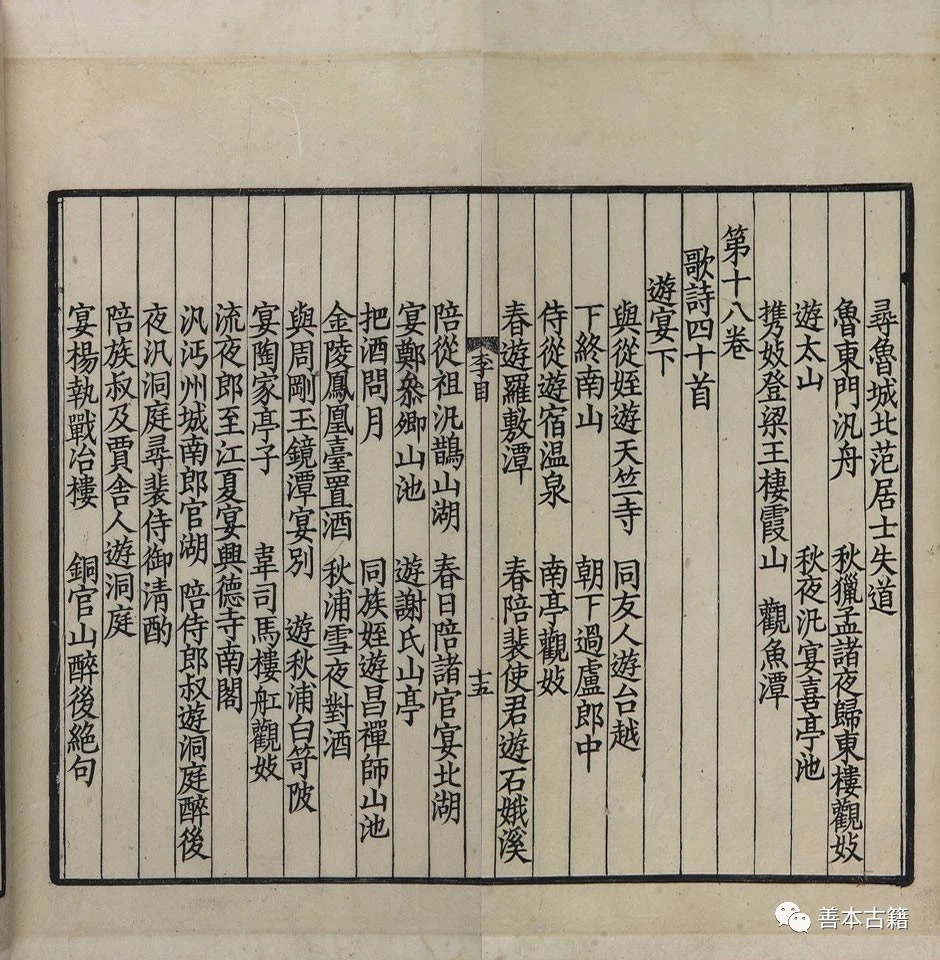 尋魯城北范居士失道
魯東門汎舟　秋獵孟諸夜歸東樓觀妓
遊太山　秋夜汎宴喜亭池
携妓登梁王棲霞山　觀魚潭
第十八卷
歌詩四十首
遊宴下
與從姪遊天竺寺　同友人遊台越
下終南山　朝下過盧郎中
侍從遊宿温泉　南亭觀妓
春遊羅敷潭　春陪裴使君遊石娥溪
李目　十五
陪從祖汎鵲山湖　春日陪諸官宴北湖
宴鄭叅卿山池　遊謝氏山亭
把酒問月　同族姪遊昌禪師山池
金陵鳳凰臺置酒　秋浦雪夜對酒
與周剛玉鏡潭宴別　遊秋浦白笴陂
宴陶家亭子　韋司馬樓舡觀妓
流夜郎至江夏宴興德寺南閣
汎沔州城南郎官湖　陪侍郎叔遊洞庭醉後
夜汎洞庭尋裴侍御清酌
陪族叔及賈舍人遊洞庭
宴楊執戟冶樓　銅官山醉後絕句
善本古籍